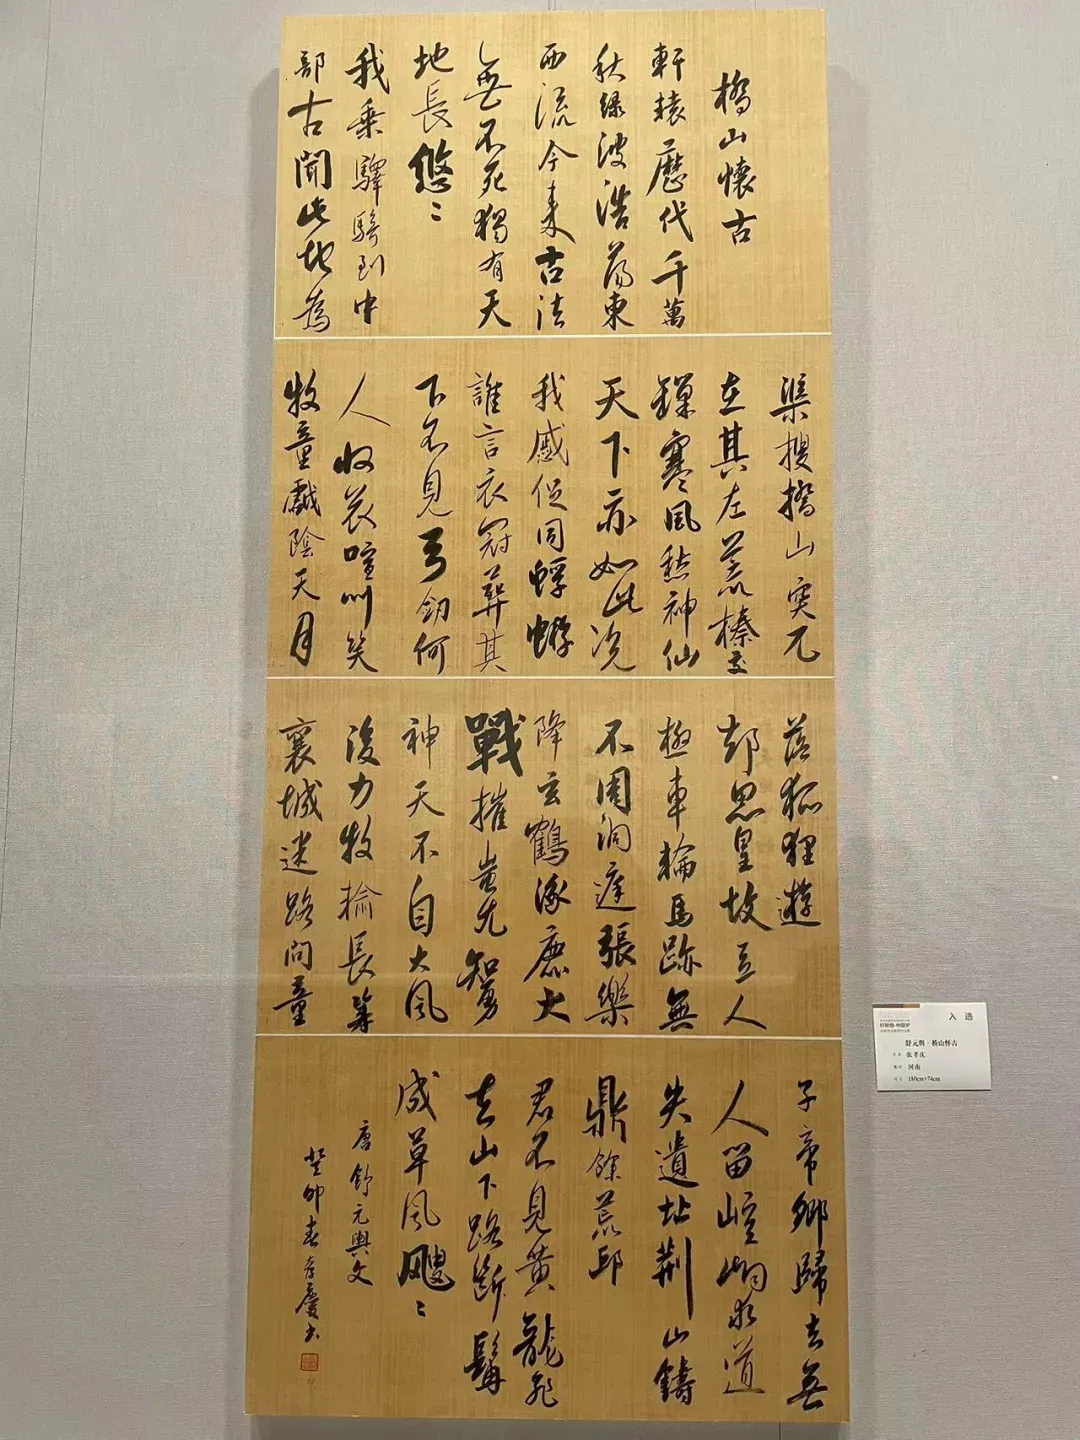 橋山懷古
軒轅歷代千萬
秋綠波浩蕩東
西流今來古往
無不死獨有天
地長悠〻
我乘驛騎到中
部古聞此地為
渠搜橋山突兀
在其左荒榛交
鏁寒風愁神仙
天下亦如此況
我感促同蜉蝣
誰言衣冠葬其
下不見弓劍何
人收哀喧叫笑
牧童戲陰天月
落狐狸遊
却思皇墳立人
極車輪馬跡無
不周洞庭張樂
降玄鶴涿鹿大
戰摧蚩尤智勇
神天不自大風
後力牧輸長籌
襄城迷路問童
子帝鄉歸去無
人留崆峒求道
失遺址荊山鑄
鼎餘荒邱
君不見黃龍飛
去山下路斷髯
成草風颼〻
唐舒元輿文
癸卯春孝慶書
入选
舒元舆·桥山怀古
张孝庆
河南
180cm×74cm